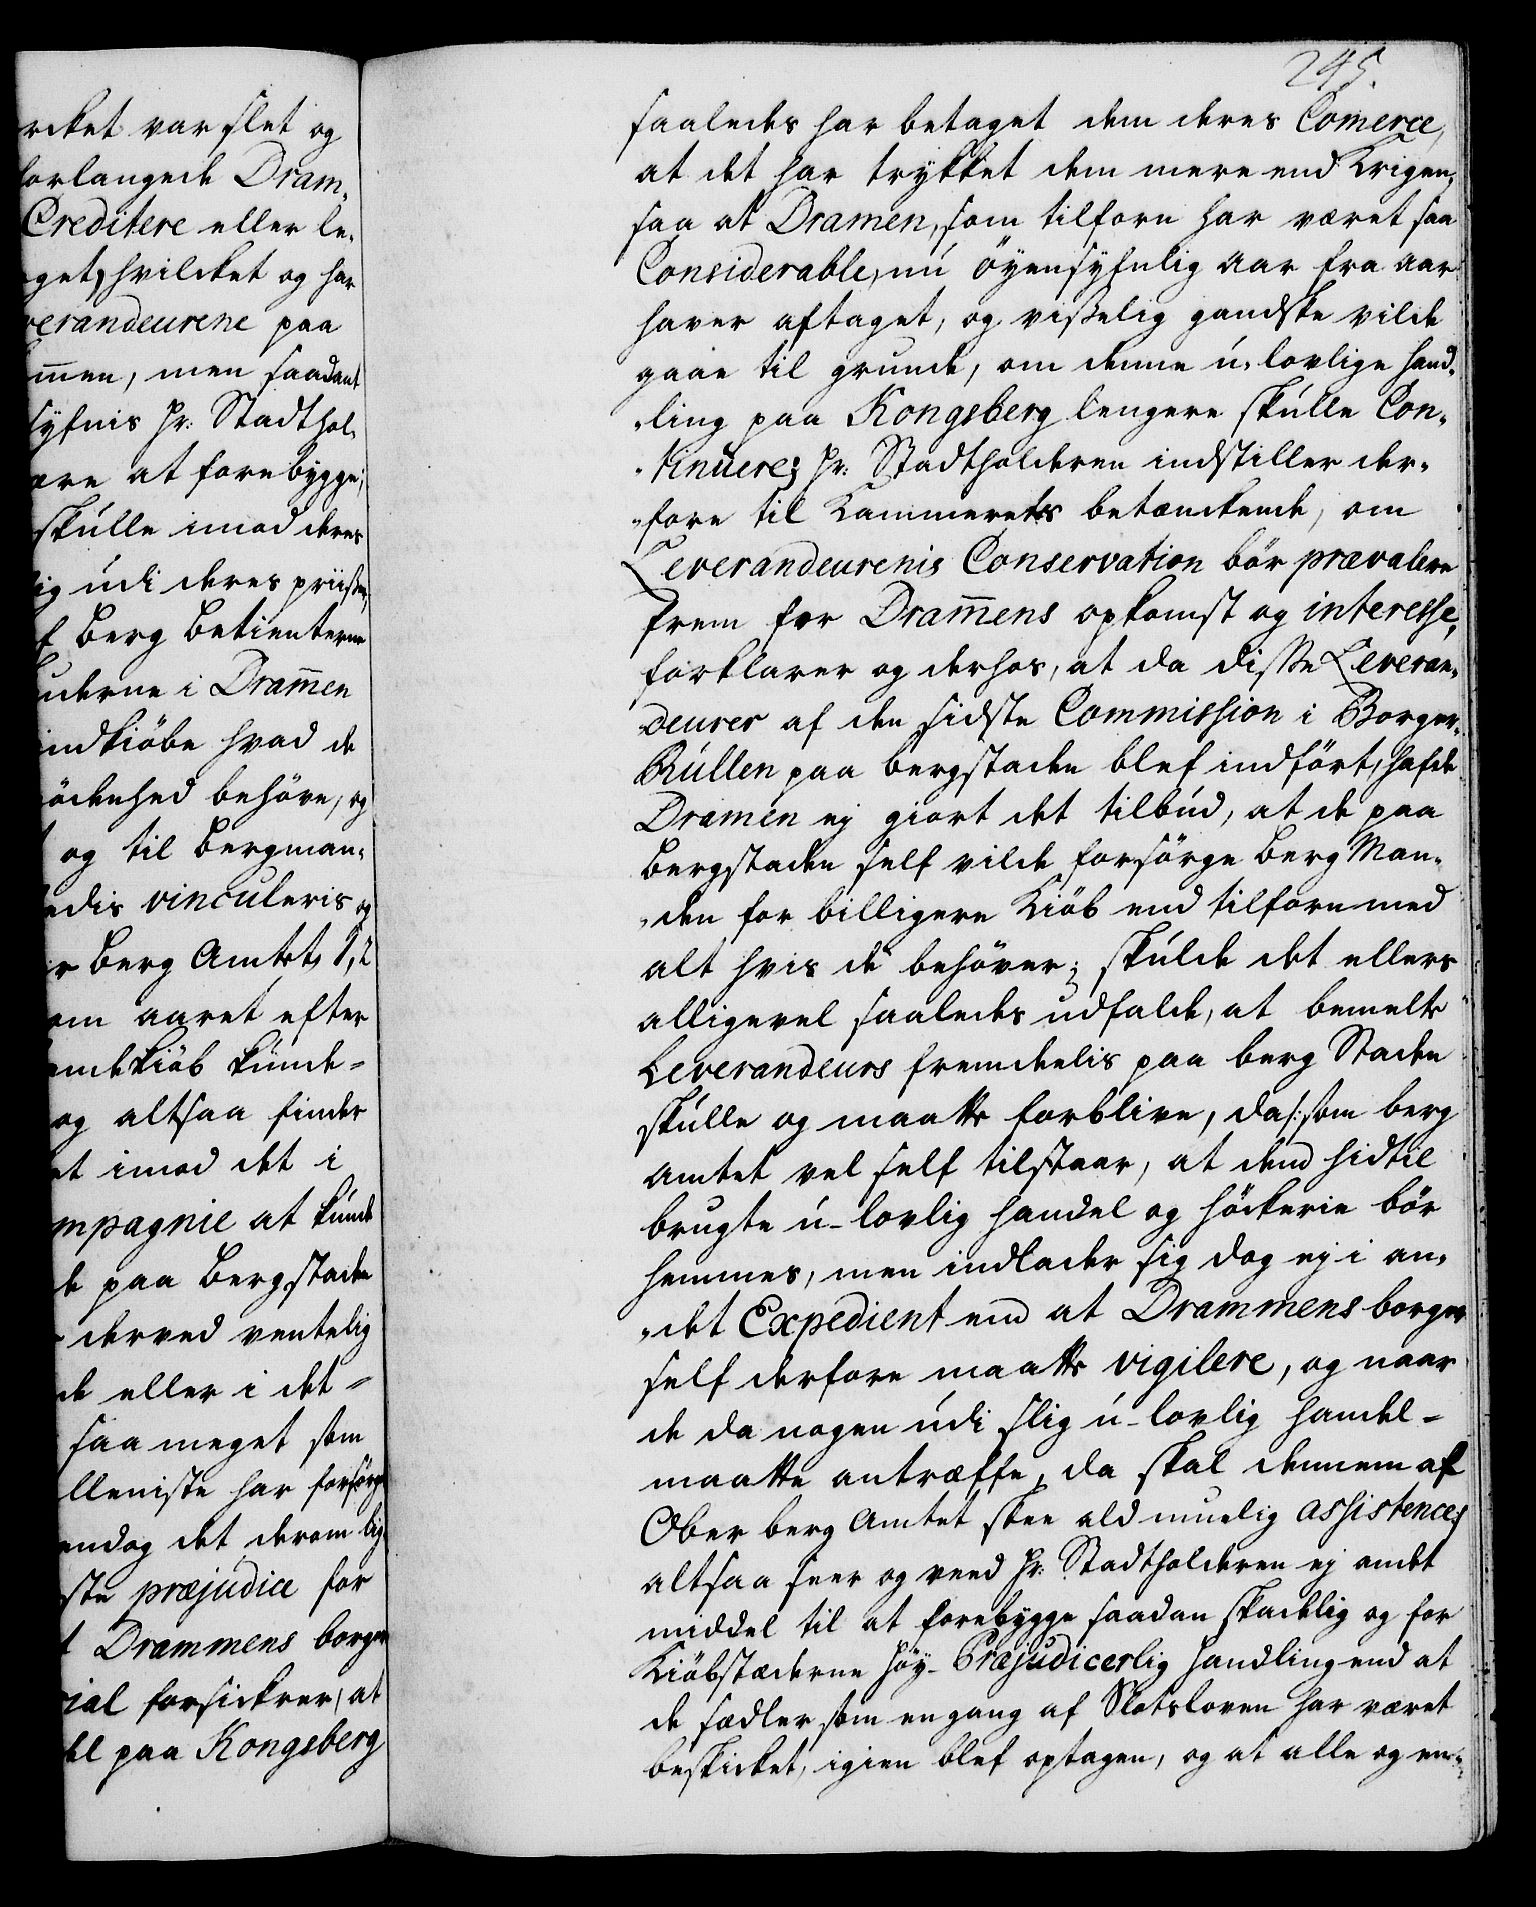 rcket var slet og
forlangede Dram¬
Creditere eller le¬
get, hvilcket og har
verandeurene paa
m̄en, men saadant
syfnis Hr: Stadthol¬
are at forebygge,
skulle imod deres
ig udi deres priiser,
f Berg Betienterne
nderne i Dram̄en
indkiöbe hvad de
ödenhed behöve, og
og til Bergman¬
edis vinculeris og
r Berg Amtet, 1, 2
om aaret efter
endekiöb kunde
og altsaa finder
et imod det i
mpagnie at kunde
e paa Bergstaden
derved ventelig
de eller i det
saa meget som
lleniste har forsörge
endog det derom lig
ste præjudice for
t Drammens borger
ial forsickrer, at
el paa Kongsberg
245.
saaledes har betaget dem deres Com̄erce,
at det har trykket dem mere end Krigen,
saa at Dram̄en, som tilforn har været saa
Considerable, nu öyensyhnlig aar fra aar
haver aftaget, og visselig gandske vilde
gaae til grunde, om denne u-lovlige hand¬
ling paa Kongsberg lengere skulle Con¬
tinuere; Hr: Stadtholderen indstiller der¬
fore til Kammerets betænckende, om
Leverandeurenis Conservation bör prævalere
frem for Dram̄ens opkomst og interesse,
forklarer og derhos, at da disse Leveran¬
deurer af den sidste Commission i Borger
Rullen paa bergstaden blef indfört, hafde
Dram̄en ej giort det tilbud, at de paa
Bergstaden self vilde forsörge Berg Man¬
den for billigere Kiöb end tilforn med
alt hvis de behöver; skulde det ellers
alligevel saaledes udfalde, at bemelte
Leverandeurs fremdeelis paa berg Staden
skulle og maatte forblive, da /: som berg
amtet vel self tilstaar, at dend hidtil
brugte u-lovlig handel og höckerie bör
hemmes, men indlader sig dog ej i an¬
det Expedient end at Drammens borger
self derfore maatte vigilere, og naar
de da nogen udi slig u-lovlig handel
maatte antræffe, da skal dennem af
Ober berg Amtet skee ald muelig assistence;
altsaa seer og veed Hr: Stadtholderen ej andet
middel til at forebygge saadan skadelig og for
Kiöbstæderne höy-Præjudicerlig handling end at
de sædler som en gang af Slotsloven har været
beskicket, igien blef optagen, og at alle og en¬